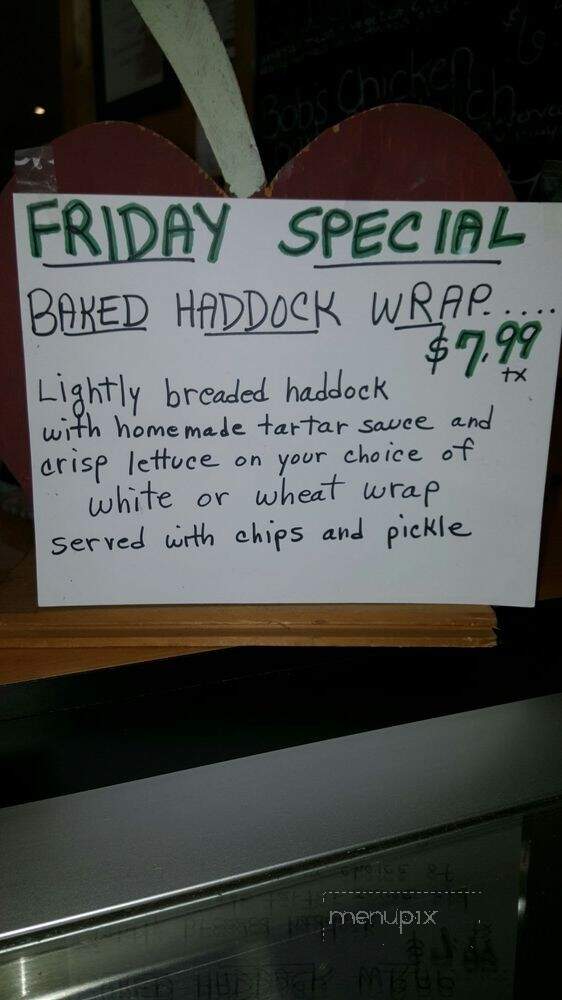 Bob's Chicken
FRIDAY SPECIAL
BAKED HADDOCK WRAP.....
$7.99
tx
Lightly breaded haddock
with homemade tartar sauce and
crisp lettuce on your choice of
white or wheat wrap
served with chips and pickle
menupix